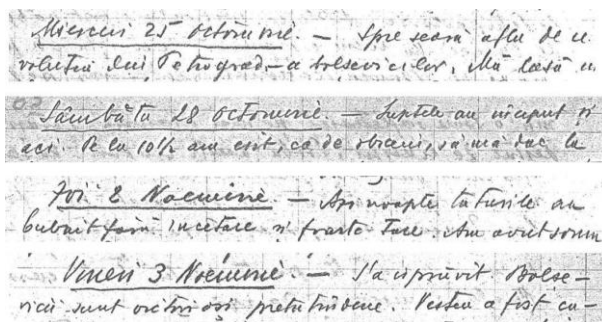 Miercuri 25 Octomvrie. — Spre seară aflu de re
voluția din Petrograd – a bolșevicilor. Mă lasă
Sâmbătă 28 Octomvrie. — Luptele au început și
aci. Pe la 10½ am eșit, ca de obiceiu, să mă duc la
Joi 2 Noemvrie — Azi noapte tunurile au
bubuit fără încetare și foarte tare. Am avut somn
Vineri 3 Noemvrie — S'a isprăvit. Bolșe–
vicii sunt victorioși pretutindeni. Vestea a fost